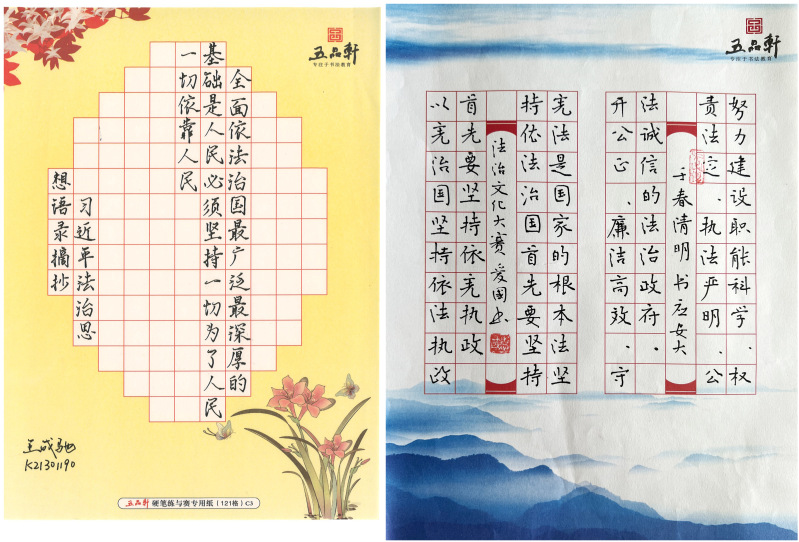 五品軒
专注于书法教育
全面依法治国最广泛最深厚的
基础是人民必须坚持一切为了人民
一切依靠人民
习近平法治思
想语录摘抄
K21301190
五品軒 硬笔练与赛专用纸（121格）C3
五品軒
专注于书法教育
努力建设职能科学、权
责法定、执法严明、公
开公正、廉洁高效、守
法诚信的法治政府。
壬春清明 书
宪法是国家的根本法坚
持依法治国首先要坚持
以宪治国坚持依法执政
首先要坚持依宪执政
法治文化大赛爱国书